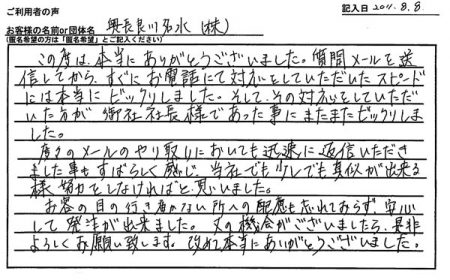 ご利用者の声
記入日 2011.8.8
お客様の名前or団体名 奥長良川名水(株)
(匿名希望の方は「匿名希望」とご記入ください)
この度は、本当にありがとうございました。質問メールを送
信してから、すぐにお電話にて対応をしていただいたスピード
には本当にビックリしました。そして、その対応をしていただ
いた方が御社社長様であった事にまたまたビックリしま
した。
度々のメールのやり取りにおいても迅速に返信いただき
ました事もすばらしく感じ、当社でも少しでも真似が出来る
様努力をしなければと思いました。
お客の目の行き届かない所への配慮も忘れておらず、安心
して発注が出来ました。又の機会がございましたら、是非
よろしくお願い致します。改めて本当にありがとうございました。